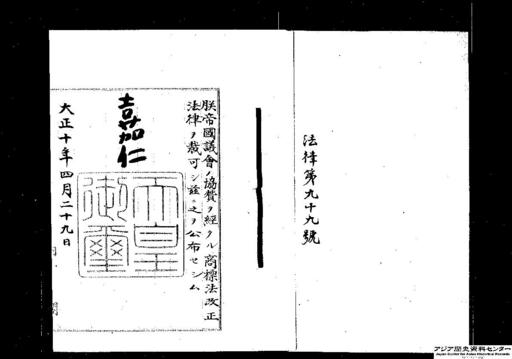 法律第九十九號
朕帝國議會ノ協贊ヲ經タル商標法改正
法律ヲ裁可シ茲ニ之ヲ公布セシム
嘉仁
天皇
御璽
大正十年四月二十九日
アジア歴史資料センター
Japan Center for Asian Historical Records